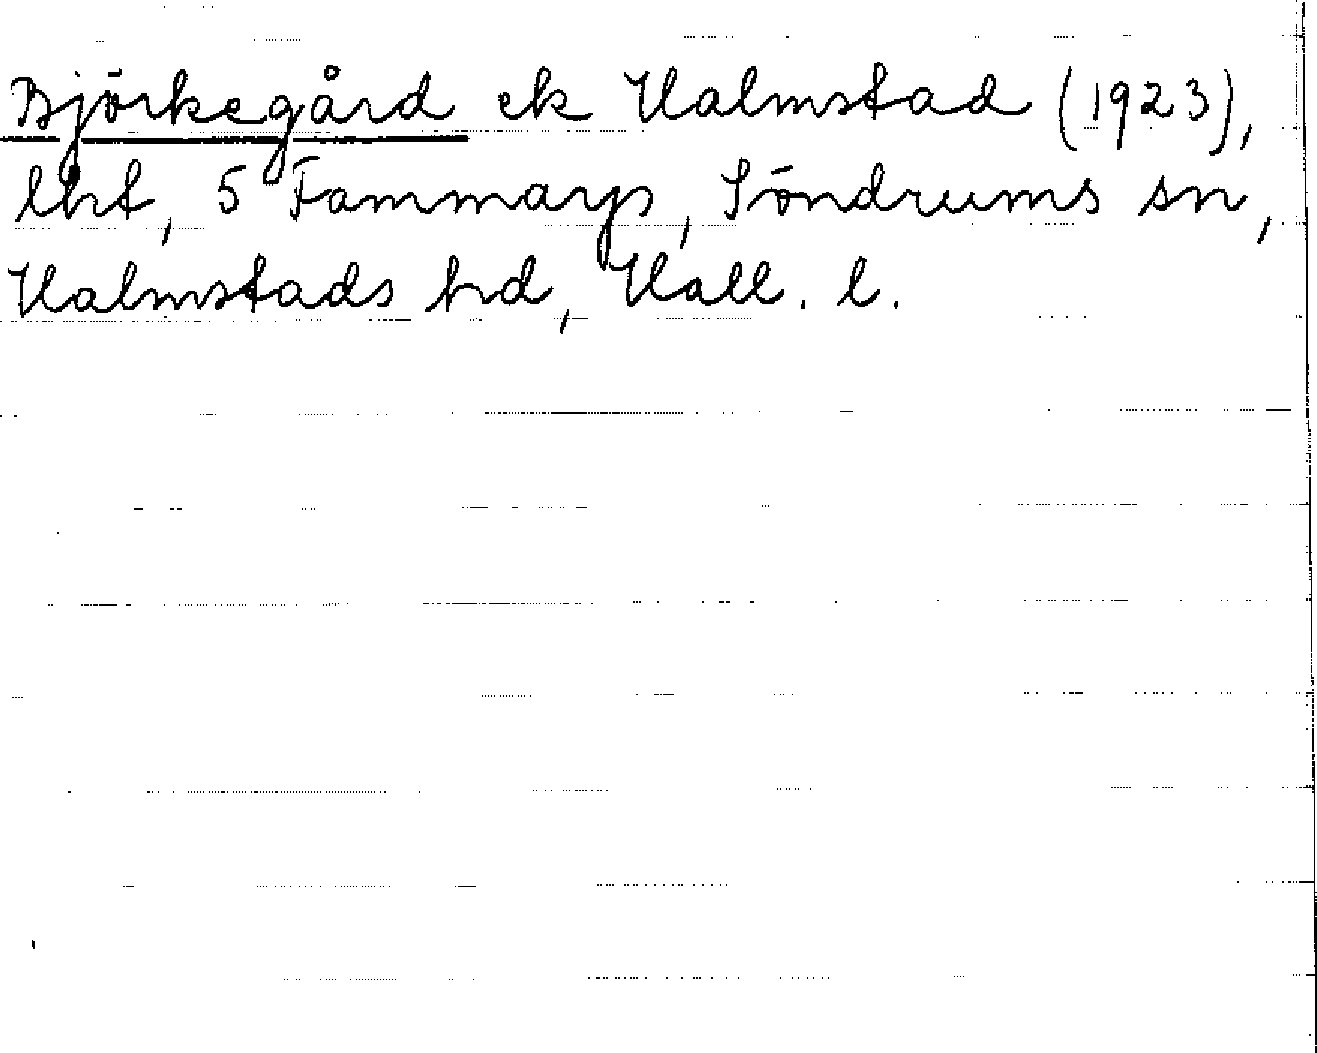 Björkegård ek Halmstad (1923),
lht, 5 Fammarp, Söndrums sn,
Halmstads hd, Hall. l.